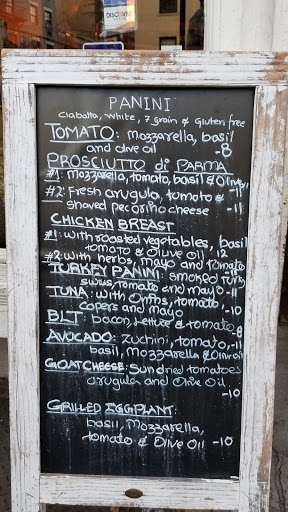 DISCOVER
PANINI
Ciabatta, White, 7 grain & Gluten free
TOMATO: Mozzarella, basil
and olive oil -8
PROSCIUTTO di PARMA
#1: mozzarella, tomato, basil & Olive oil
-11
#2: Fresh arugula, tomato &
shaved pecorino cheese -11
CHICKEN BREAST
#1 with roasted vegetables, basil
tomato & Oliuve oil 12
#2: with herbs, mayo and tomato
TURKEY PANINI: smoked turk
swiss, tomato and mayo -11
TUNA: with Onions, tomato,
capers and mayo -10
BLT: bacon, lettuce & tomato -8
AVOCADO: Zuchini, tomato, -11
basil, Mozzarella & Olive oil
GOAT CHEESE: Sundried tomatoes
arugula and Olive Oil
-10
GRILLED EGGPLANT:
basil, Mozzarella,
tomato & Olive Oil -10